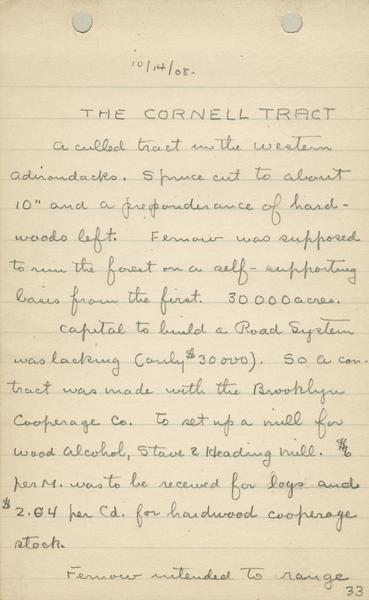 10/14/08.
THE CORNELL TRACT
A culled tract in the western
Adirondacks. Spruce cut to about
10" and a preponderance of hard-
woods left. Fernow was supposed
to run the forest on a self-supporting
basis from the first. 30000 acres.
Capital to build a Road System
was lacking (only $30000). So a con-
tract was made with the Brooklyn
Cooperage Co. to set up a mill for
wood alcohol, Stave & Heading mill. $6
per M. was to be received for logs and
$2.64 per Cd. for hardwood cooperage
stock.
Fernow intended to range
33